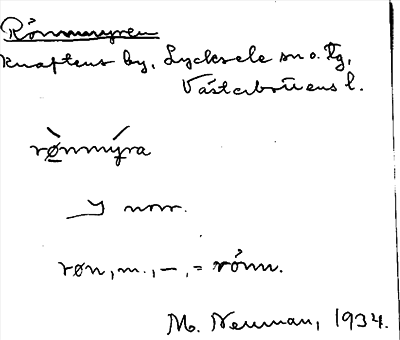 Rönnmyren
Knaftens by, Lycksele sn o. tg,
Västerbottens l.
rø̀nmýra
y norr.
røn, m., –, = rönn.
M. Neuman, 1934.